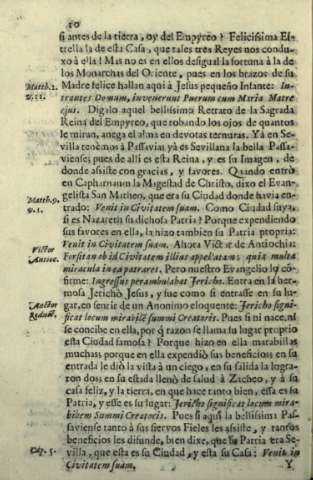 10
si antes de la tierra, oy del Empyreo? Felicissima Es-
trella la de esta Casa, que tales tres Reyes nos condu-
xo à ella! Mas no es en ellos desigual la fortuna à la de
los Monarchas del Oriente, pues en los brazos de su
Matth. 2. Madre felice hallan aqui à Jesus pequeño Infante: In-
v. 11. trantes Domum, invenerunt Puerum cum Maria Matre
ejus. Digalo aquel bellissimo Retrato de la Sagrada
Reina del Empyreo, que robando los ojos de quantos
le miran, anega el alma en devotas ternuras. Yà en Se-
villa tenèmos à Passavia; yà es Sevillana la bella Passa-
viense; pues de allì es esta Reina, y es su Imagen, de
donde assiste con gracias, y favores. Quando entrò
en Capharnaun la Magestad de Christo, dixo el Evan-
Matth. 9. gelista San Matheo, que era su Ciudad donde havia en-
v. 1. trado: Venit in Civitatem suam. Como Ciudad suya,
si es Nazareth su dichosa Patria? Porque expendiendo
sus favores en ella, la hizo tambien su Patria propria:
Victor Venit in Civitatem suam. Ahora Victor de Antiochia:
Antioc. Forsitan ob id Civitatem illius appellatam: quia multa
miracula in ea patraret. Pero nuestro Evangelio lo cò-
firme: Ingressus perambulabat Jericho. Entra en la her-
mosa Jerichò Jesus, y fue como si entrasse en su lu-
Auctor gar, en sentir de un Anonimo eloquente: Jericho signi-
ficat locum mirabile summi Creatoris. Pues si ni nace, ni
se concibe en ella, por q̃ razon se llama su lugar proprio
esta Ciudad famosa? Porque hizo en ella marabillas
muchas; porque en ella expendiò sus beneficios en su
entrada le diò la vista à un ciego, en su salida la logra-
ron dos; en su estada llenò de salud à Zacheo, y à su
casa feliz, y la tierra, en que hace tanto bien, essa es su
Patria, y esse es su lugar: Jericho significat locum mira-
bilem Summi Creatoris. Pues si aqui la bellissima Pas-
saviense tanto à sus siervos Fieles les assiste, y tantos
beneficios les difunde, bien dixe, que su Patria era Se-
Cap. 5. villa, que esta es su Ciudad, y esta su Casa: Venit in
Civitatem suam. Y